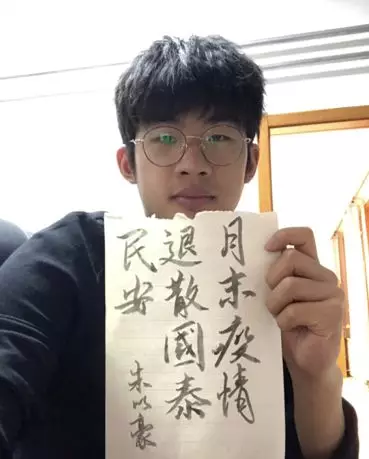 月末疫情
退散國泰
民安
朱以豪